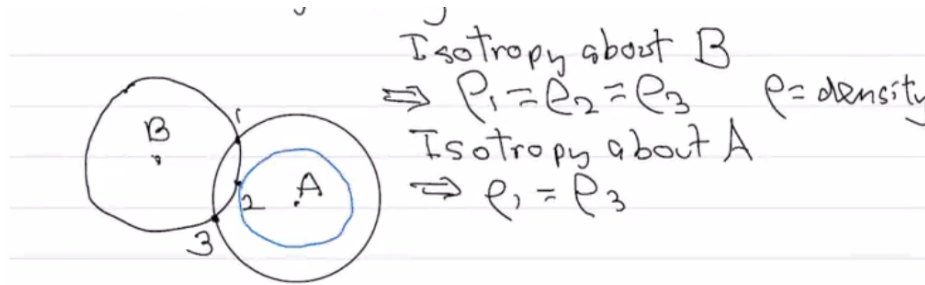 Isotropy about B
⇒ ρ₁ = ρ₂ = ρ₃ ρ = density
Isotropy about A
⇒ ρ₁ = ρ₃
B
1
A
2
3